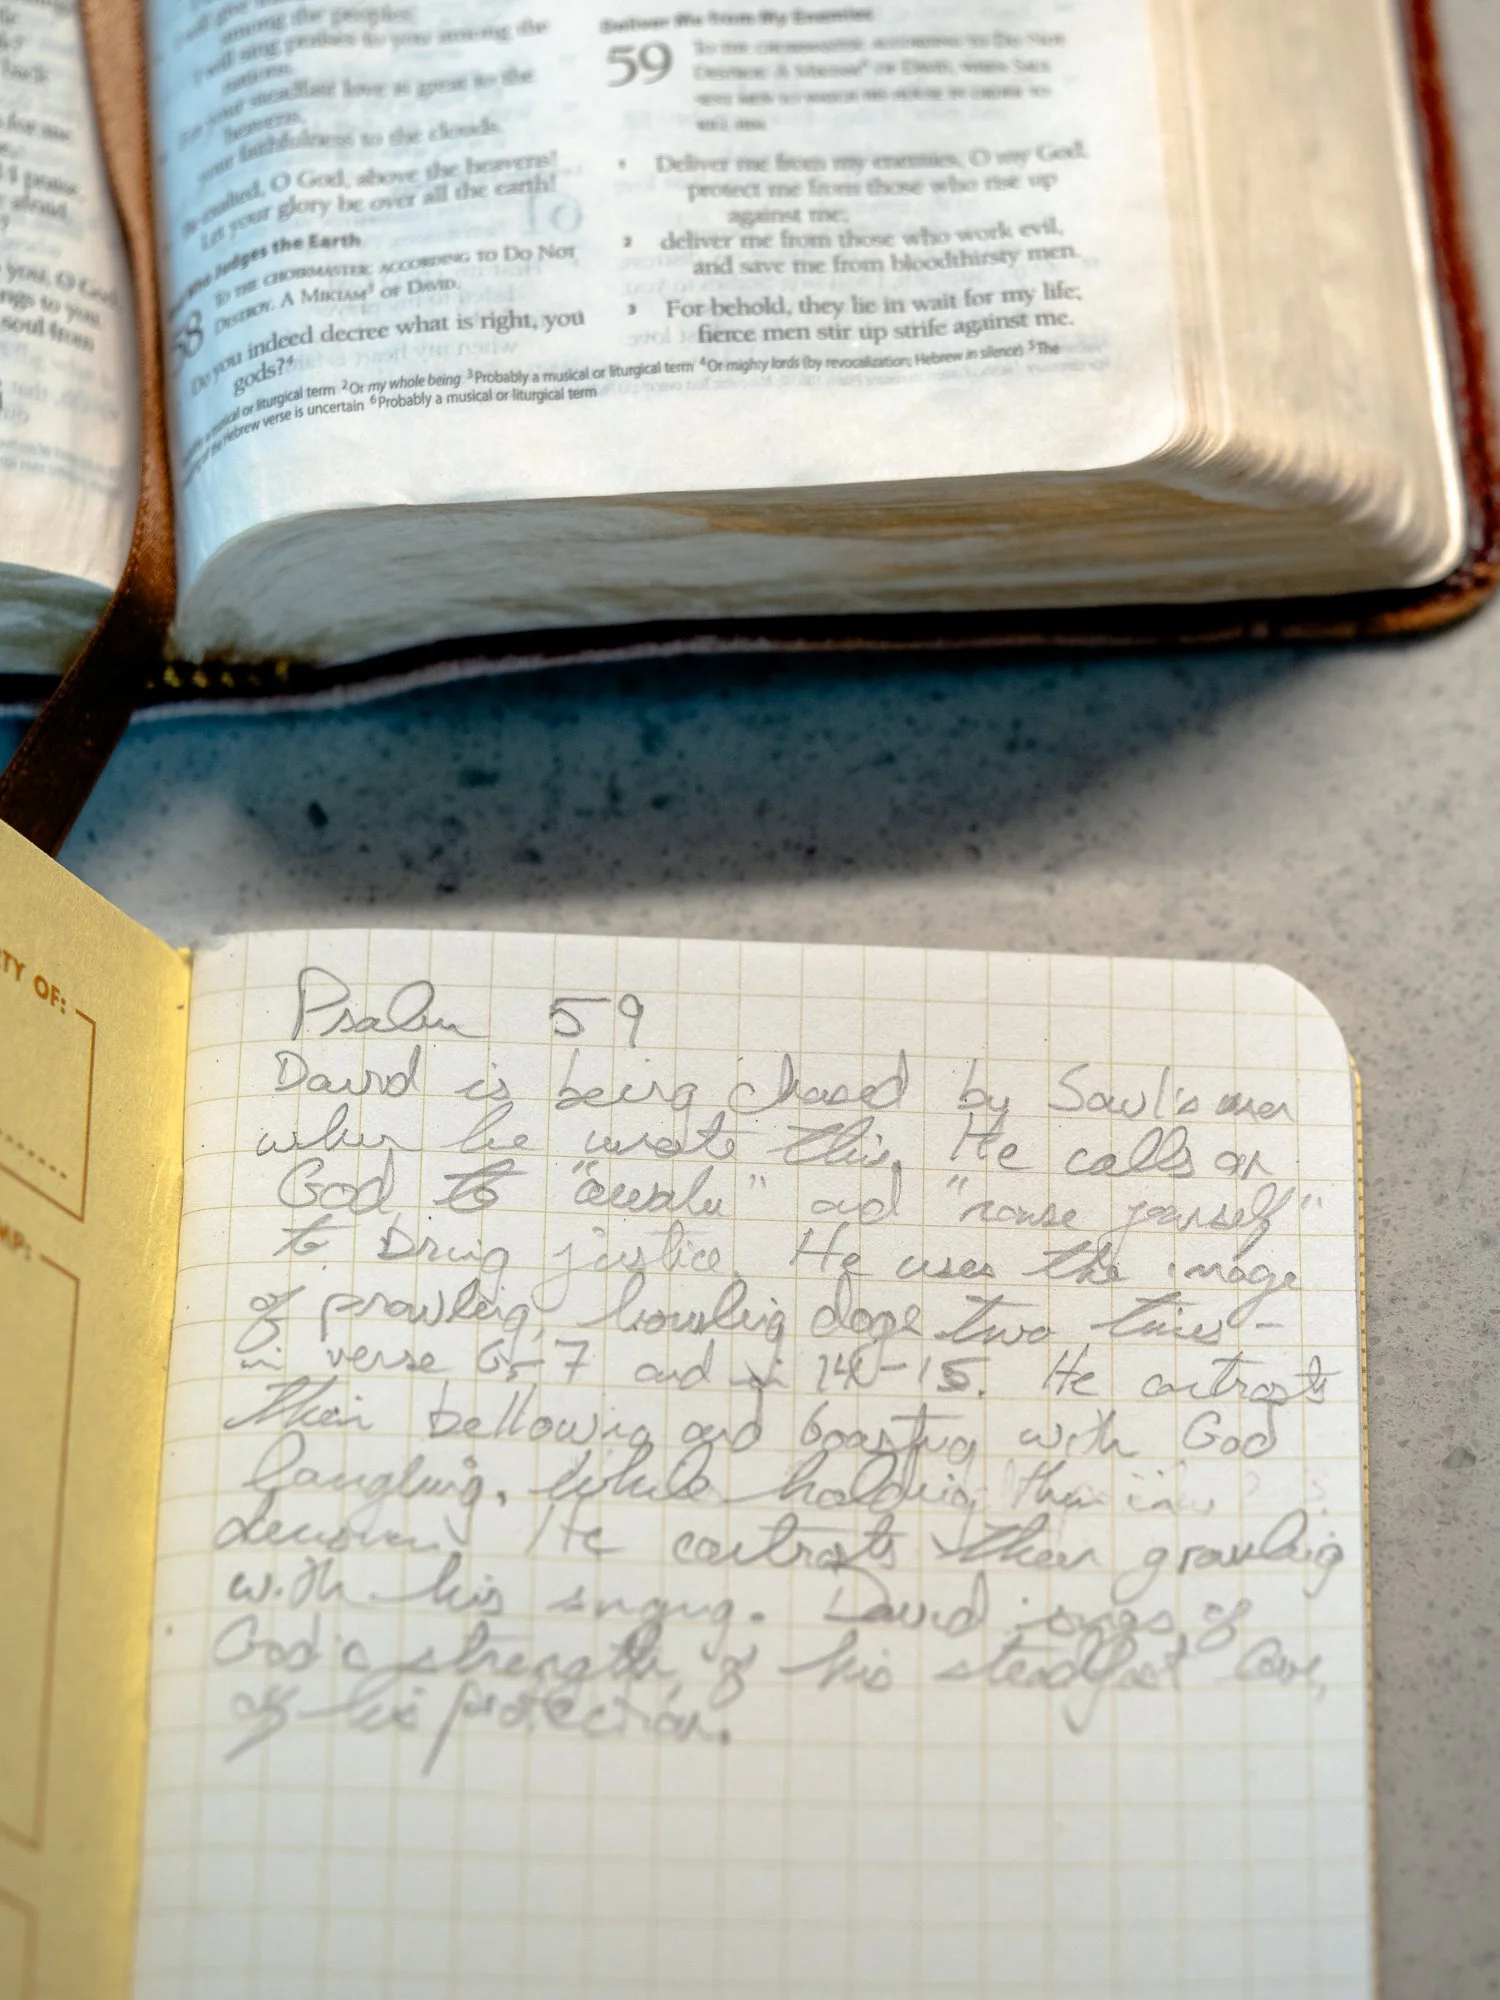 back
for me
I praise
afraid
you, O God
ngs to you
soul from
among the peoples;
I will sing praises to you among the
nations.
For your steadfast love is great to the
heavens,
your faithfulness to the clouds.
Be exalted, O God, above the heavens!
Let your glory be over all the earth!
Judges the Earth
58
TO THE CHOIRMASTER: ACCORDING TO DO NOT
DESTROY. A MIKTAM⁵ OF DAVID.
Do you indeed decree what is right, you
gods?⁴
Deliver Me from My Enemies
59
TO THE CHOIRMASTER: ACCORDING TO DO NOT
DESTROY. A MIKTAM⁶ OF DAVID, WHEN SAUL
SENT MEN TO WATCH HIS HOUSE IN ORDER TO
KILL HIM.
1 Deliver me from my enemies, O my God;
protect me from those who rise up
against me;
2 deliver me from those who work evil,
and save me from bloodthirsty men.
3 For behold, they lie in wait for my life;
fierce men stir up strife against me.
a musical or liturgical term ²Or my whole being ³Probably a musical or liturgical term ⁴Or mighty lords (by revocalization; Hebrew in silence) ⁵The
of the Hebrew verse is uncertain ⁶Probably a musical or liturgical term
TY OF:
MP:
Psalm 59
David is being chased by Saul's men
when he wrote this. He calls on
God to "awake" and "rouse yourself"
to bring justice. He uses the image
of prowling, howling dogs two times -
in verse 6-7 and in 14-15. He contrasts
their bellowing and boasting with God
laughing, while holding them in
derision. He contrasts their growling
with his singing. David sings of
God's strength, of his steadfast love,
of his protection.